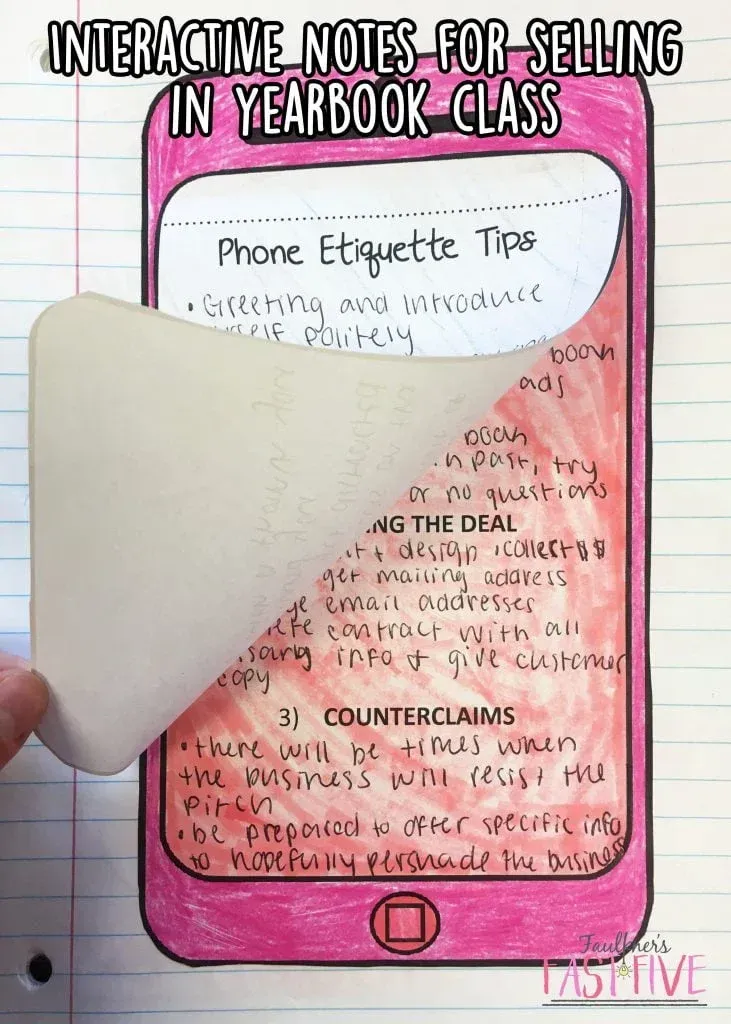 INTERACTIVE NOTES FOR SELLING
IN YEARBOOK CLASS
Phone Etiquette Tips
• Greeting and introduce
politely
book
ads
book
past, try
or no questions
THE DEAL
design, collect $$
get mailing address
email addresses
contract with all
info & give customer
copy
3) COUNTERCLAIMS
• there will be times when
the business will resist the
pitch
• be prepared to offer specific info
to hopefully persuade the business
Faulkner's
FAST FIVE